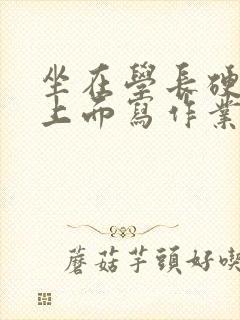 坐在學長硬
上面寫作業
蘑菇芋頭好喫